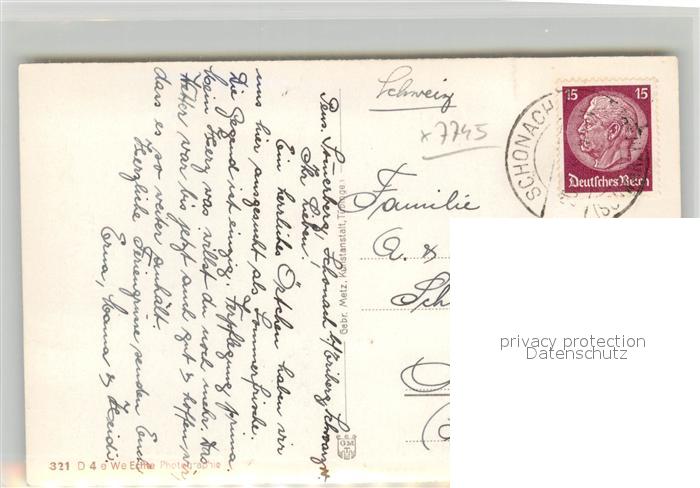 Pens. Sauerberg, Schonach b/Triberg, Schwarzw.
Ihr Lieben.
Ein herrliches Örtchen haben wir
uns hier ausgesucht als Sommerfrische.
Die Gegend ist einzig. Verpflegung prima.
beim Herz was willst du noch mehr. Das
Wetter war bis jetzt auch gut & hoffen wir,
dass es so weiter anhält.
Herzliche Feriengrüsse senden Euch
Erna, Mama & Heidi.
Schweiz
x 7745
Familie
A. &
Sch
SCHONACH
15 15
Deutsches Reich
Gebr. Metz, Kunstanstalt, Tübingen
GM
321 D 4 e We Echte Photographie
privacy protection
Datenschutz